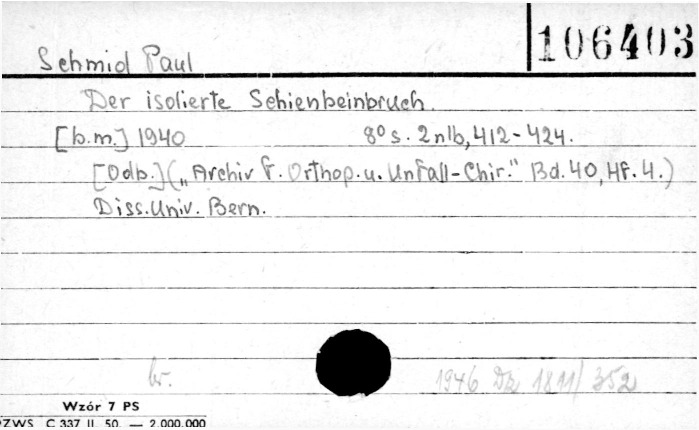 106403
Schmid Paul
Der isolierte Schienbeinbruch.
[b.m.] 1940 8° s. 2nlb, 412-424.
[Odb.] („Archiv f. Orthop. u. Unfall-Chir." Bd. 40, Hf. 4.)
Diss. Univ. Bern.
br. 1946 Dz 1811/352
Wzór 7 PS
PZWS C 337 II. 50. — 2.000.000